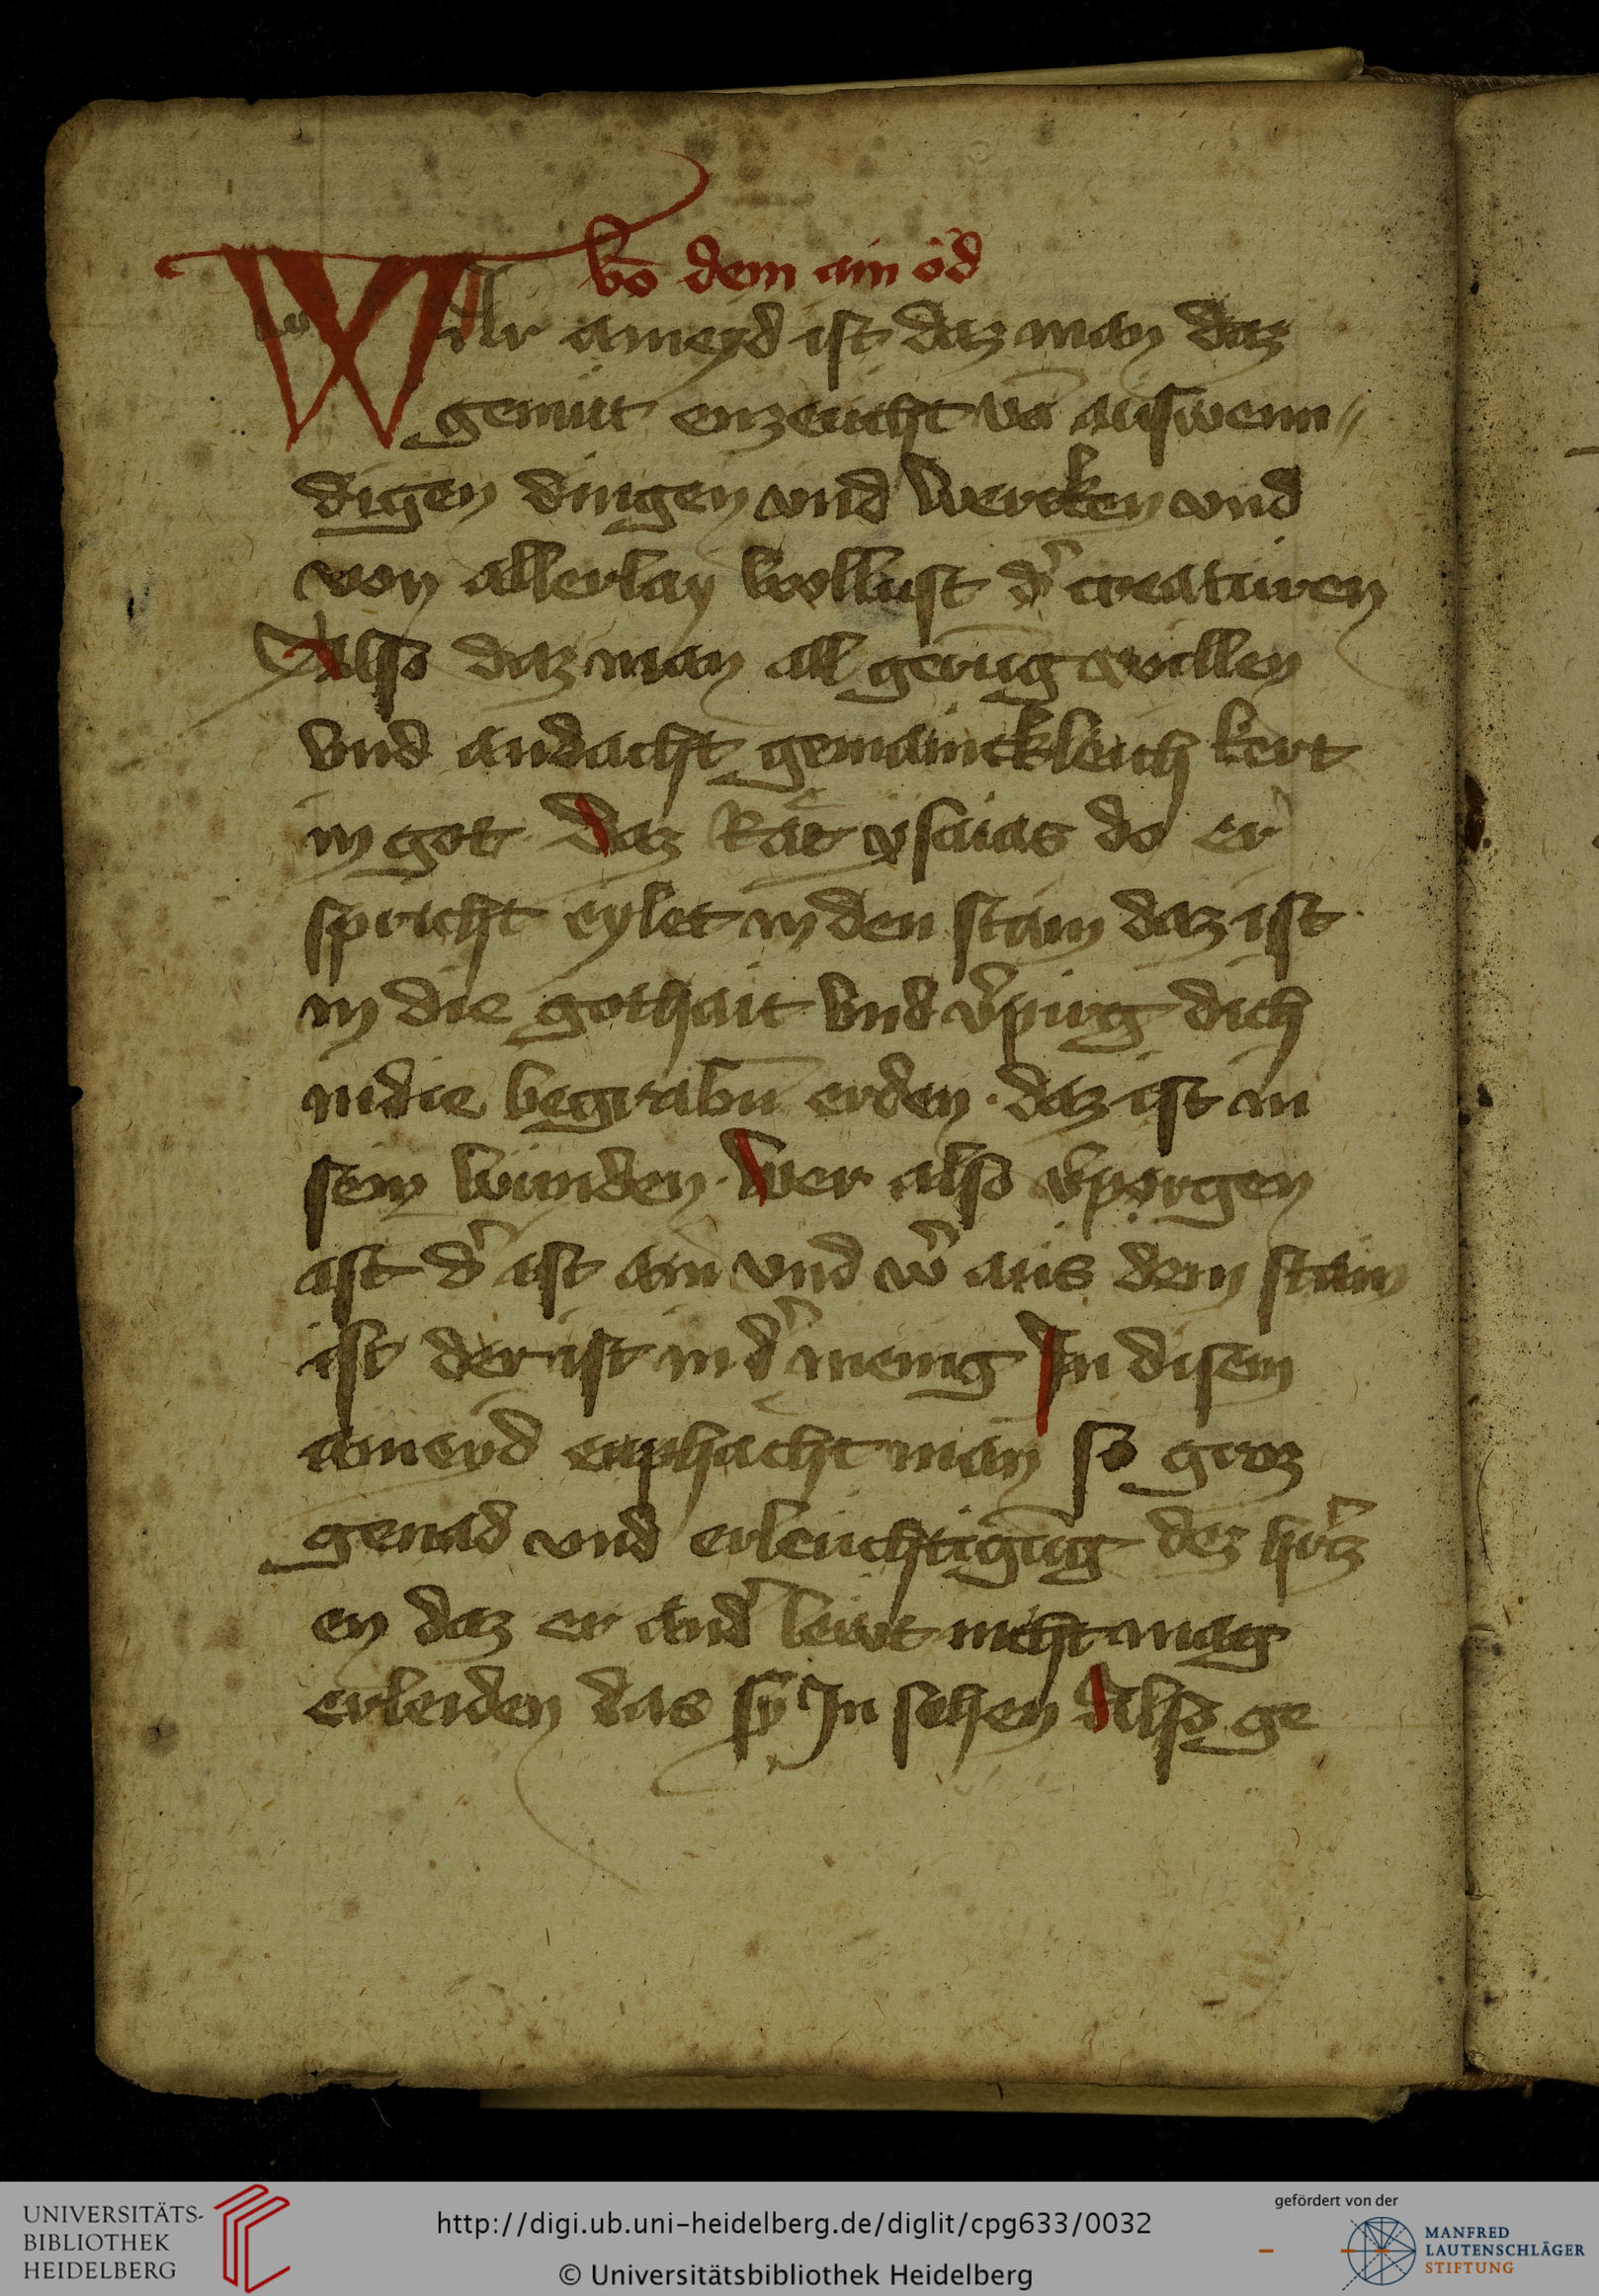 vō dem ain öd
War ameyd ist daz man daz
gemüt enzeücht vō auswenn„
digen dingen vnd wercken vnd
von allerlay wollust dˀ creaturen
Also daz man all gerūg willen
vnd andacht gemaincklich kert
in got Daz Rät ysaias do er
spricht eylet in den stain daz ist
in die gothait vnd vˀpirg dich
in die begrabn̄ erden · daz ist in
sein wünden · Wer also vˀporgen
ist dˀ ist ain vnd wˀ aüs dem stain
ist der ist in dˀ menig In disem
ameyd enphächt man so groz
genad vnd erleuchtigūg dez hˀtz
en daz er andˀ lewt nicht mag
erleiden das sy In sehen Also ge
UNIVERSITÄTS-
BIBLIOTHEK
HEIDELBERG
http://digi.ub.uni-heidelberg.de/diglit/cpg633/0032
© Universitätsbibliothek Heidelberg
gefördert von der
MANFRED
LAUTENSCHLÄGER
STIFTUNG